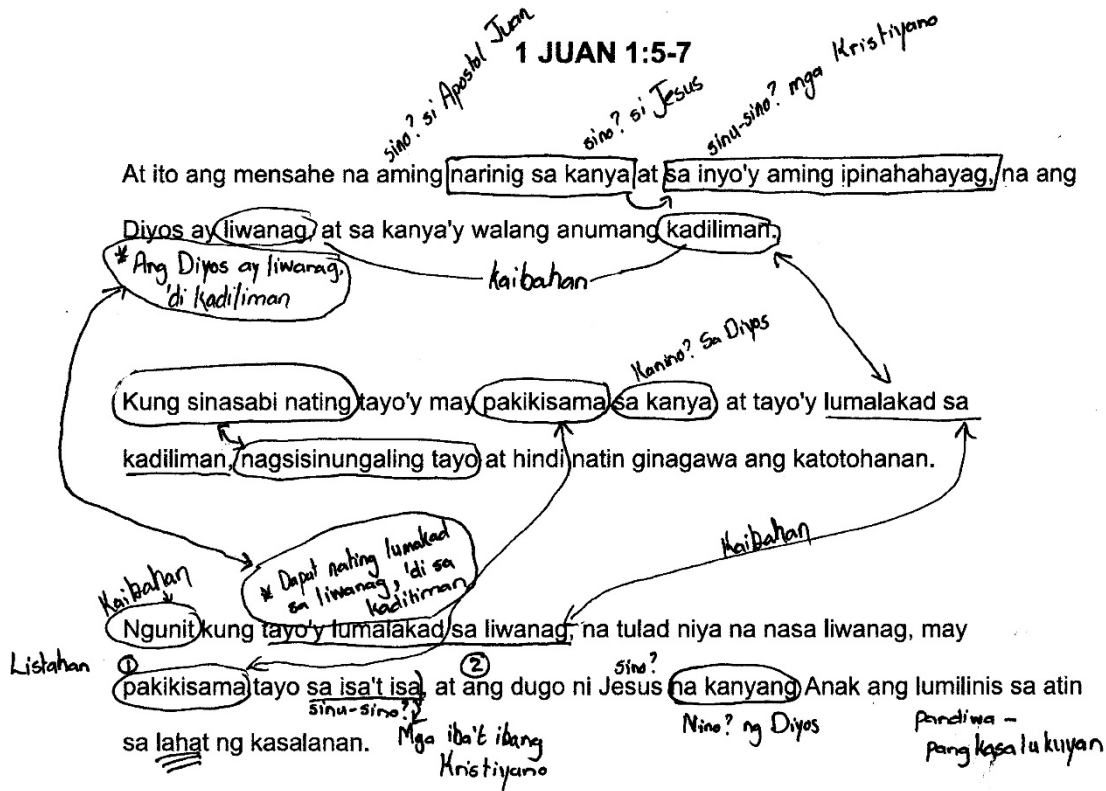 1 JUAN 1:5-7
sino? si Apostol Juan
sino? si Jesus
sinu-sino? mga Kristiyano
At ito ang mensahe na aming narinig sa kanya at sa inyo'y aming ipinahahayag, na ang
Diyos ay liwanag, at sa kanya'y walang anumang kadiliman.
* Ang Diyos ay liwanag,
'di kadiliman
kaibahan
Kanino? Sa Diyos
Kung sinasabi nating tayo'y may pakikisama sa kanya at tayo'y lumalakad sa
kadiliman, nagsisinungaling tayo at hindi natin ginagawa ang katotohanan.
Kaibahan
* Dapat nating lumakad
sa liwanag, 'di sa
kadiliman
Kaibahan
Ngunit kung tayo'y lumalakad sa liwanag, na tulad niya na nasa liwanag, may
Listahan
① ② sino?
pakikisama tayo sa isa't isa, at ang dugo ni Jesus na kanyang Anak ang lumilinis sa atin
sinu-sino?
Mga iba't ibang
Kristiyano
Nino? ng Diyos
pandiwa -
pangkasalukuyan
sa lahat ng kasalanan.